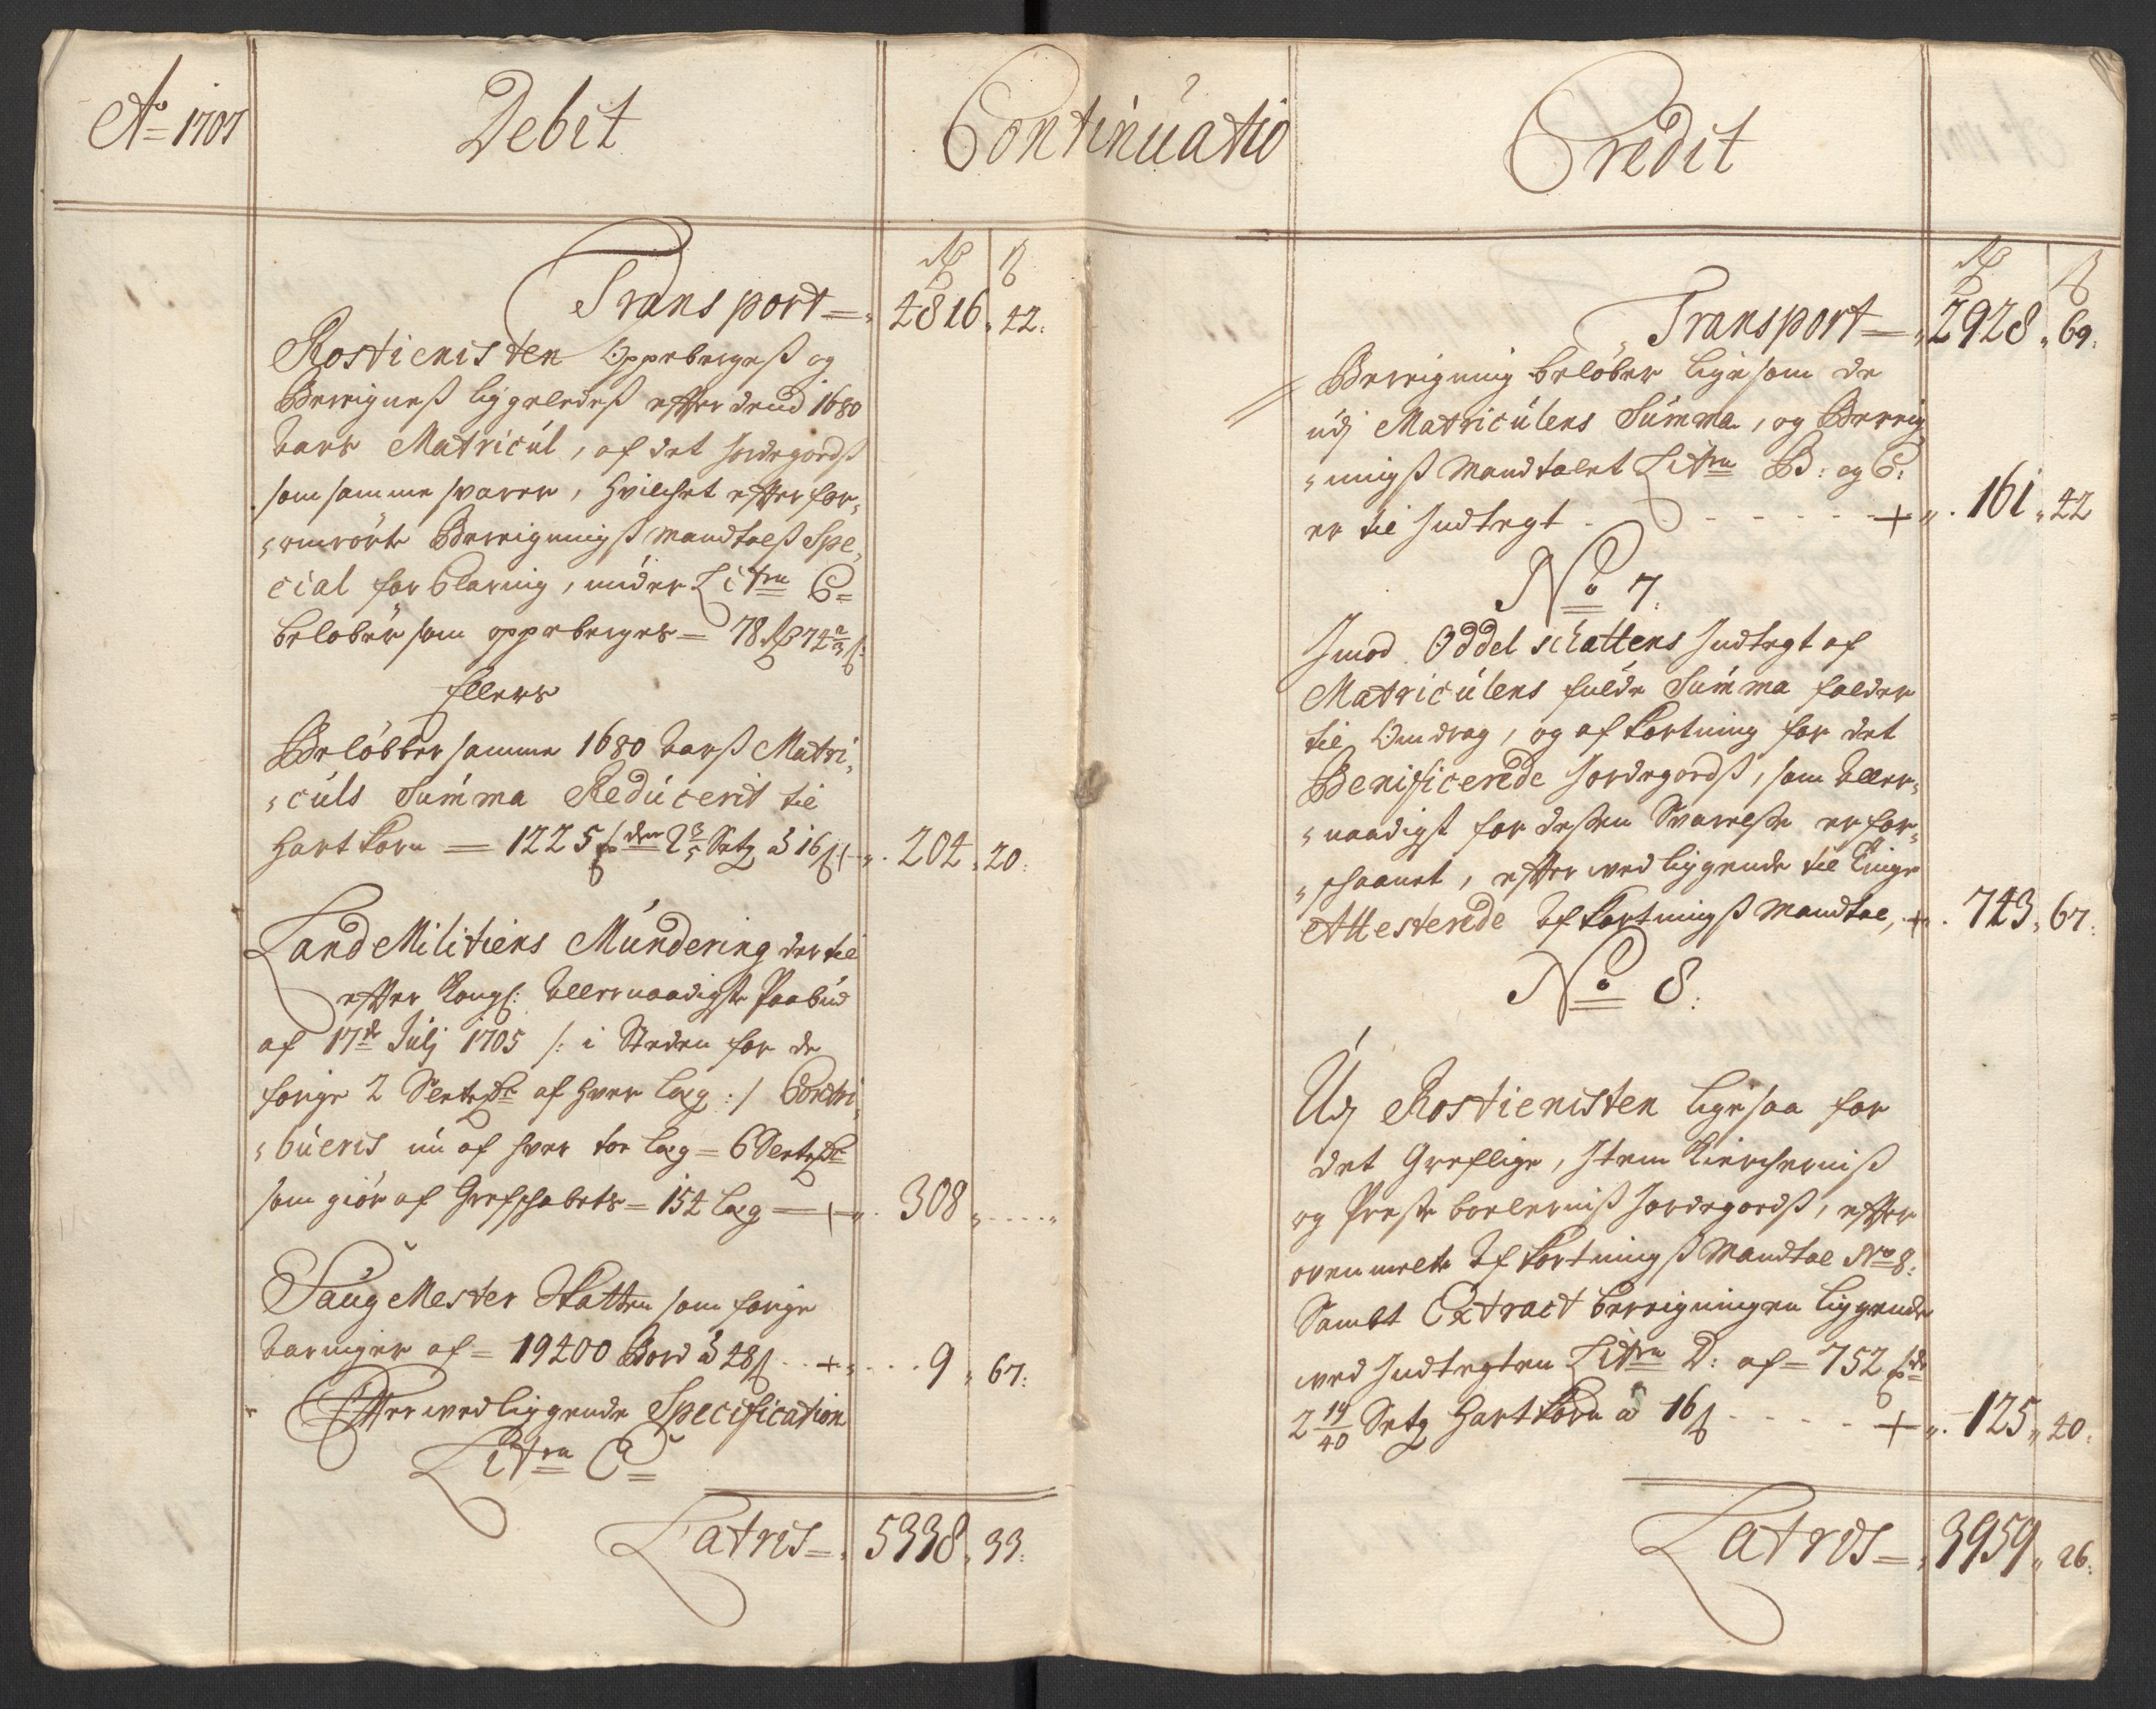 Ao 1707
Debit
Continuatio
Transport = 4816 „ 42:
Rostienisten Oppebergeß og
Bereigneß liggeledeß effter dend 1680
Aars Matricul, af det Jordegodß
som samme svarer, Hvilchet effter for,
„ Bereignings Mandtalß Spe,
cial forklaring, under Litra C=
beløber som oppeberges = 78 Rdr 74 2/3 ß:
Ellers
Beløbber samme 1680 Aarß Matri,
„culs Summa Reducerit til
Hart Korn = 1225 2 3/5 Setg à 16 ß „ 204 „ 20:
Land Militiens Mundering der til
effter Kongl: Allernaadigste Paabud
af 17de Julj 1705 /: i Steden for de
forige 2 Slette af hver Læg :/ Contri,
„bueris nu af hver Læg = 6 Slette
som giør af Grefschabets = 154 Læg = „ 308 „ ....„
Saug Mester Skatten som forige
Aaringer af = 19400 Bord à 48 ß .. + „ .... 9 „ 67:
Effter wedliggende Specification
Litra C=
Latris = 5338 „ 33:
Credit
Transport = 2928 „ 69:
Bereigning beløber ligesom de
udj Matriculens Summa, og Bereig
„nings Mandtalet Litra B: og C:
er til Indtegt - - - - - + „. 161 „ 42
No 7:
Imod Oddel schattens Indtegt af
Matriculens fulde Summa falder
til Omdrag, og af Kortning for det
Benificerede Jordegodß, som Aller,
„naadigst for dessen Svarelse er for,
„schaanet, effter wed liggende til Tinge
Attesterede Af Kortningß Mandtal, + . 743 „ 67:
No 8:
Udj Rostienisten ligesaa for
det Greflige, Item Kircherniß
og Preste boelerniß Jordegodß, effter
ovenmelte Af Kortningß Mandtal No 8:
Sambt Extract bereigningen liggende
wed Indtegten Litra D: af = 752
2 19/40 Setg Hart Korn à 16 ß - - - - + „. 125 „ 40:
Latris = 3959 „ 26: